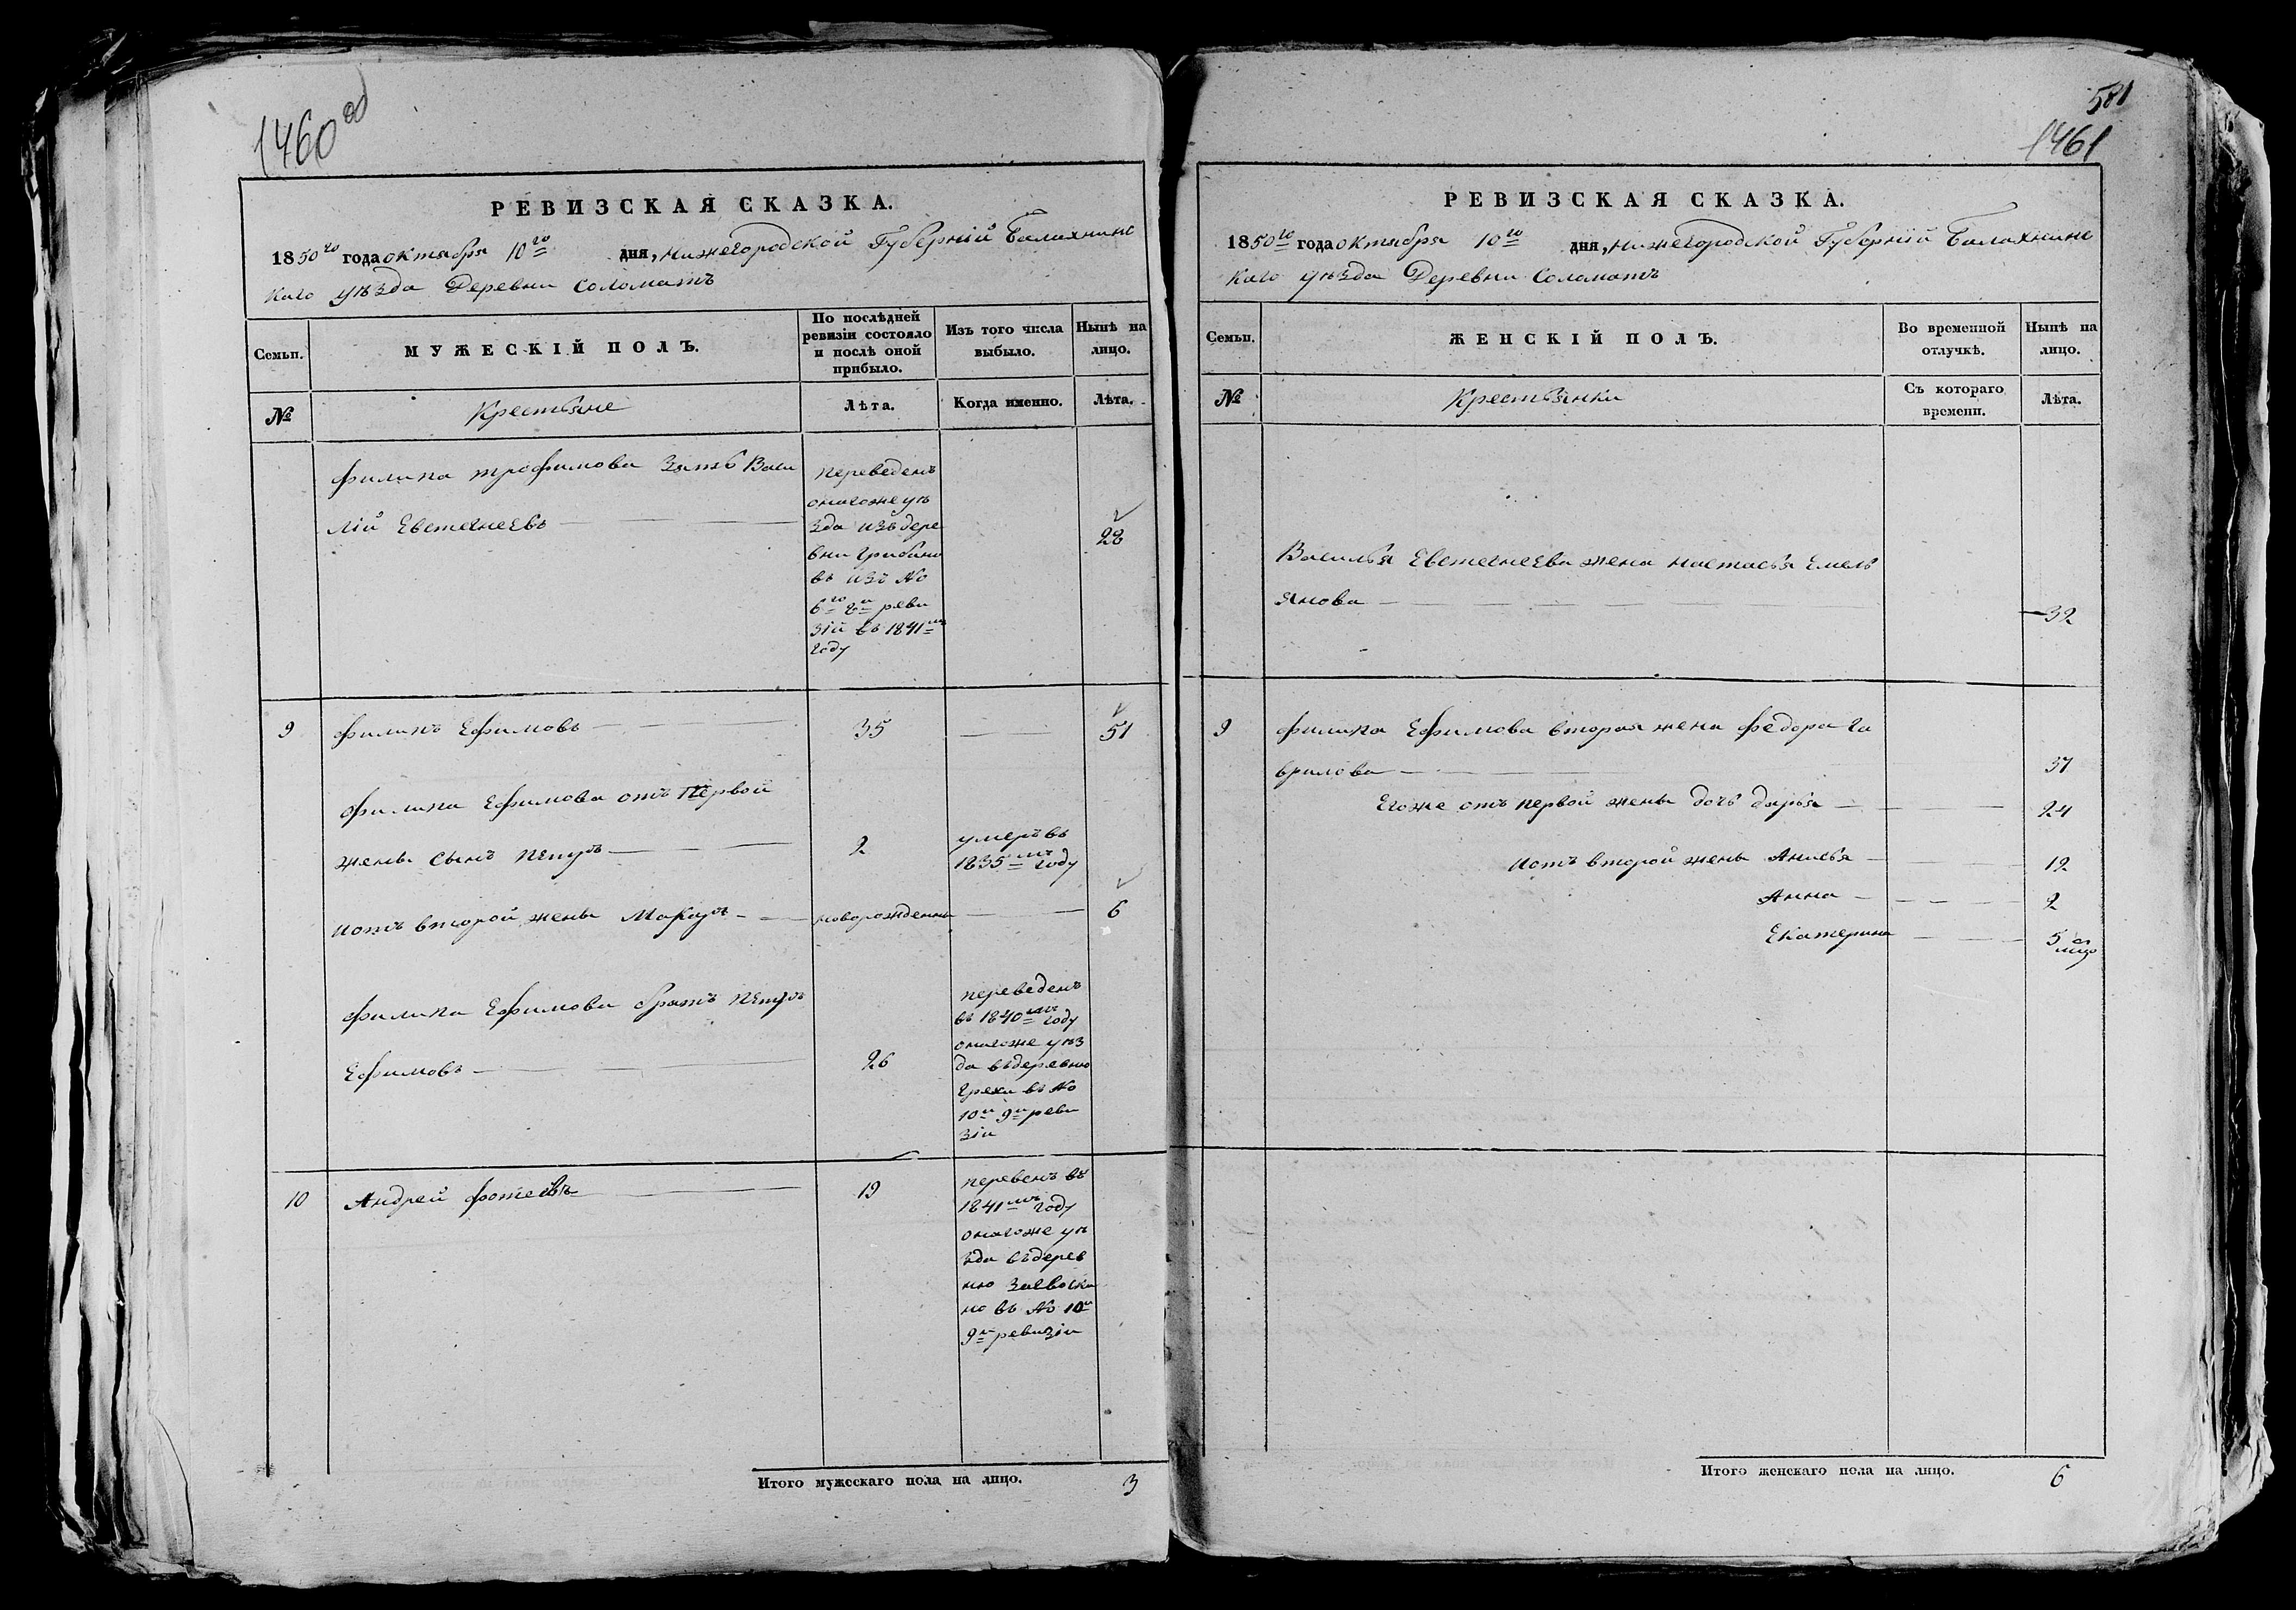 1460 об
РЕВИЗСКАЯ СКАЗКА.
1850го года октября 10го дня, Нижегородской Губерніи Балахнинс
каго уѣзда Деревни Соломатъ
Семьи.
МУЖЕСКІЙ ПОЛЪ.
По послѣдней
ревизіи состояло
и послѣ оной
прибыло.
Изъ того числа
выбыло.
Нынѣ на
лицо.
№
Крестьяне
Лѣта.
Когда именно.
Лѣта.
Филипа трофимова Зять Васи
лій Евстегнеевъ
переведенъ
оногоже уѣ
зда изъ дере
вни Грибано
въ изъ No
6го 8й реви
зіи въ 1841мъ
году
28
9
Филипъ Ефимовъ
35
51
Филипа Ефимова отъ Первой
жены сынъ Петръ
2
умеръ въ
1835мъ году
иотъ второй жены Макаръ
новорожденны
6
Филипа Ефимова братъ Петръ
Ефимовъ
26
переведенъ
въ 1840мъ году
оногоже уѣз
да въдеревню
Грехи въ No
10й 9й реви
зіи
10
Андрей фотеевъ
19
перевенъ въ
1841мъ году
оногоже уѣ
зда въдерев
ню
но въ No 10й
9й ревизіи
Итого мужескаго пола на лицо.
3
581
1461
РЕВИЗСКАЯ СКАЗКА.
1850го года октября 10го дня, Нижегородской Губерніи Балахнинс
каго уѣзда Деревни Соломатъ
Семьи.
ЖЕНСКІЙ ПОЛЪ.
Во временной
отлучкѣ.
Нынѣ на
лицо.
№
Крестьянки
Съ котораго
времени.
Лѣта.
Василья Евстегнеева жена настасья Емель
янова
32
9
Филипа Ефимова вторая жена федора Га
врилова
37
Егоже отъ первой жены дочь дарья
24
иотъ второй жены Анисья
12
Анна
2
Екатерина
5
Итого женскаго пола на лицо.
6